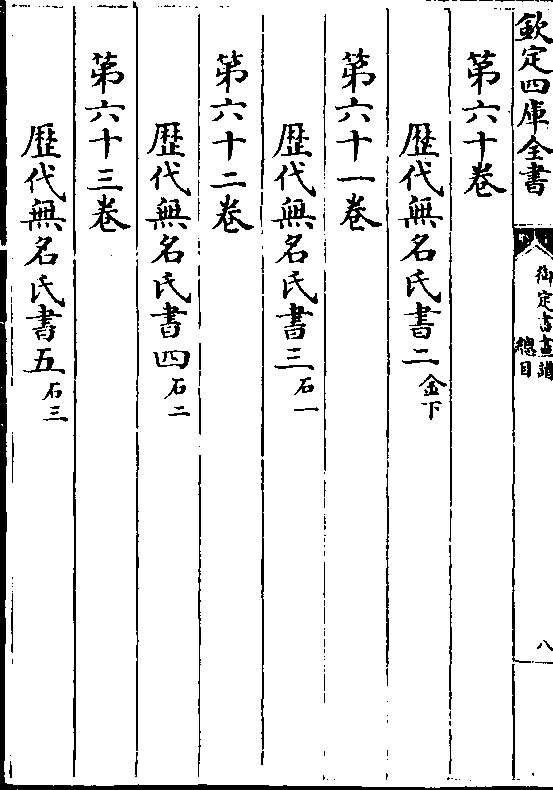 欽定四庫全書
御定書畫譜
總目
八
第六十卷
歴代無名氏書二金下
第六十一卷
歴代無名氏書三石一
第六十二卷
歴代無名氏書四石二
第六十三卷
歴代無名氏書五石三